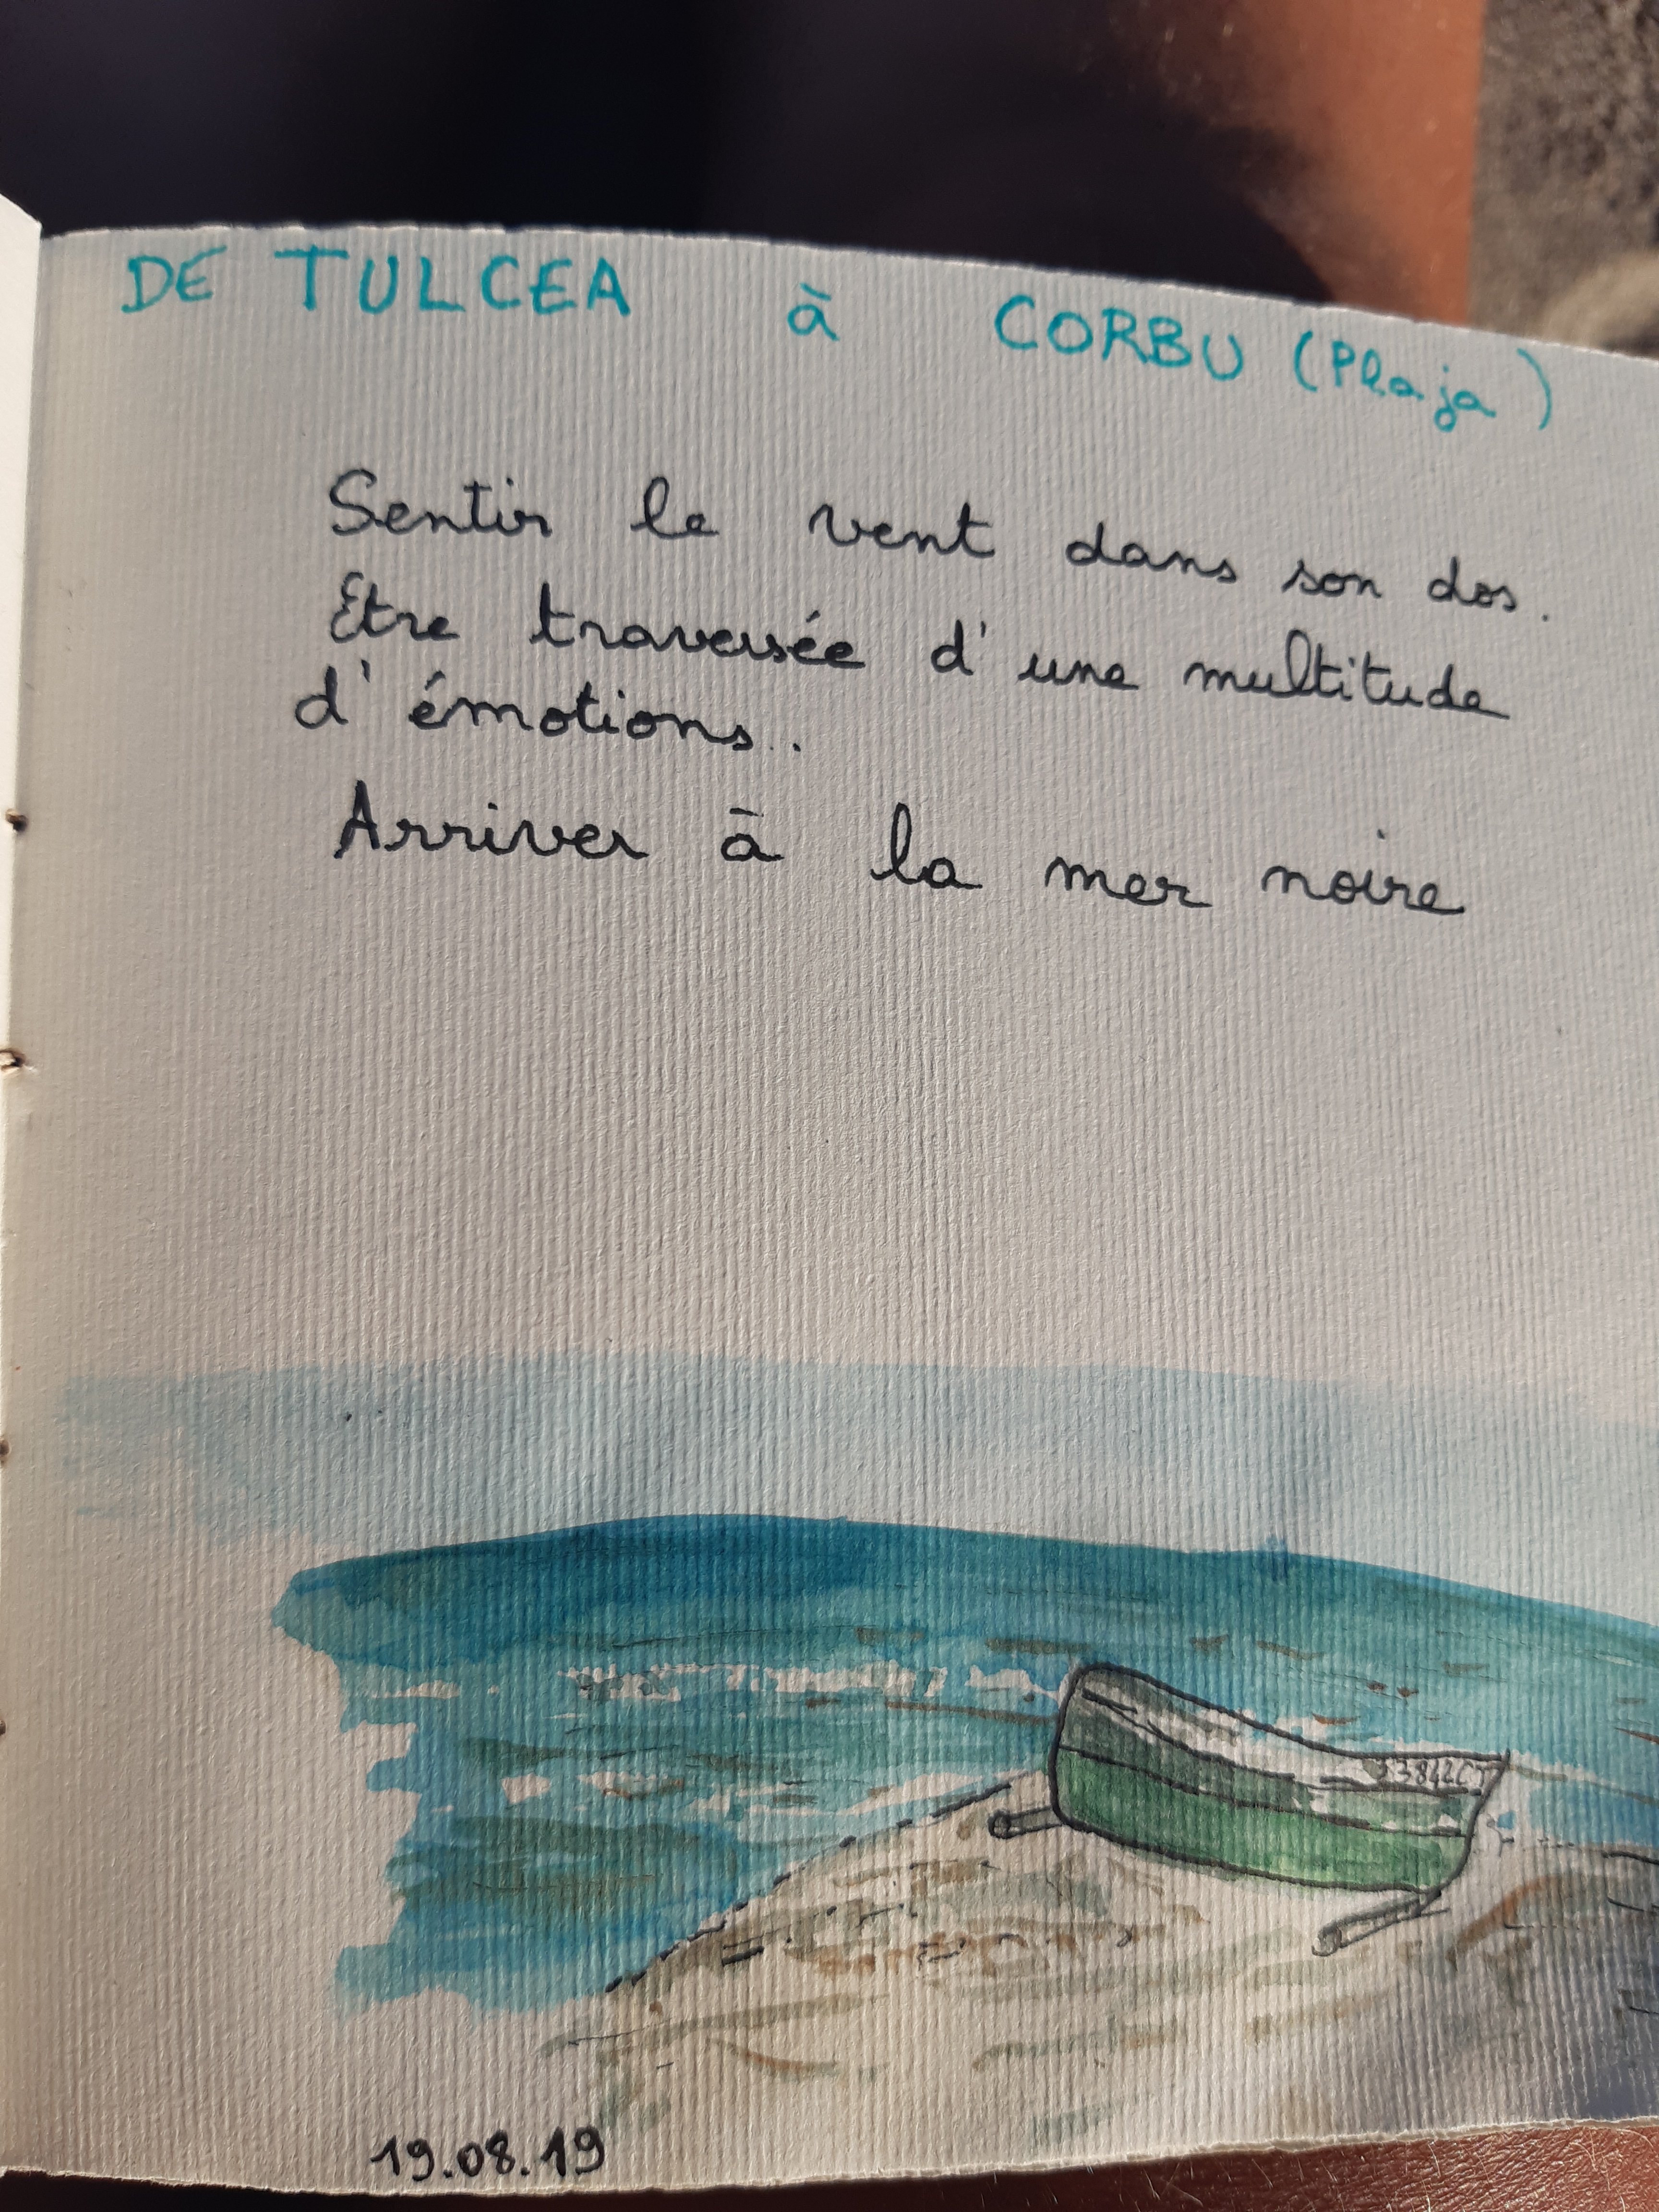 DE TULCEA à CORBU (Plaja)
Sentir le vent dans son dos.
Etre traversée d'une multitude
d'émotions..
Arriver à la mer noire
3842CT
19.08.19